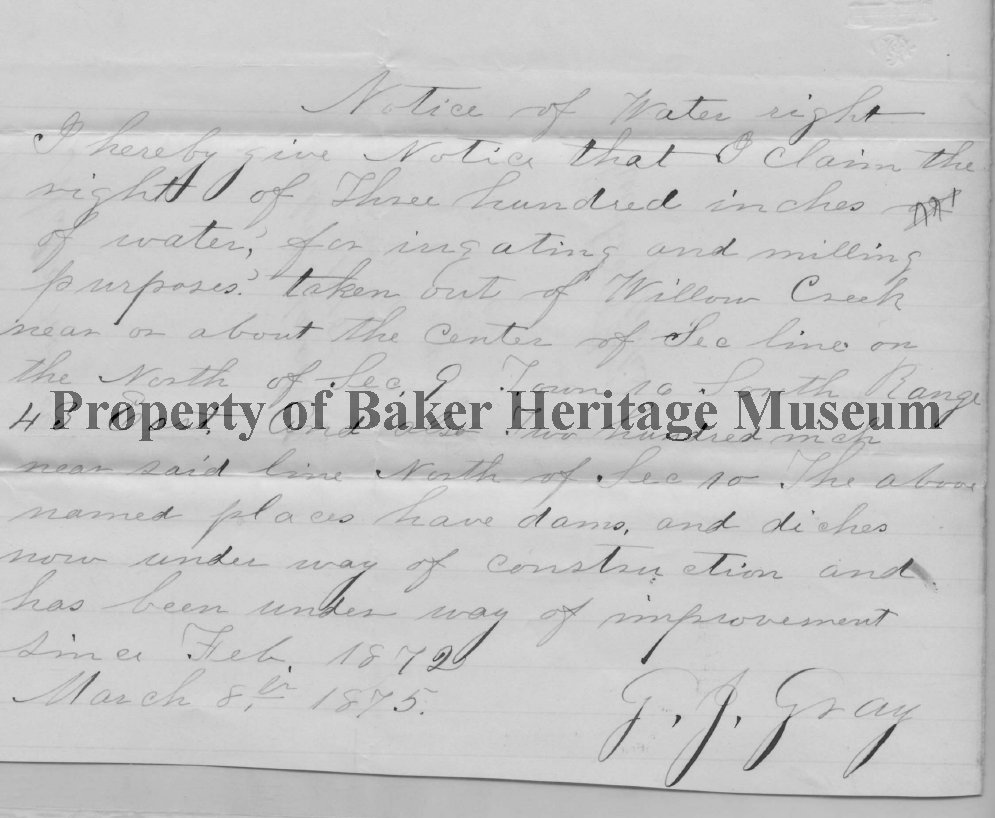 Notice of Water right
I hereby give Notice that I claim the
right of Three hundred inches
of water, for irigating and milling
purposes. taken out of Willow Creek
near or about the center of Sec line on
the North of Sec. 9 Town 10 South Range
43 East. And also Two hundred inch
Property of Baker Heritage Museum
near said line North of Sec 10 The above
named places have dams, and diches
now under way of construction and
has been under way of improvement
since Feb. 1872
March 8th 1875.
G. J. Gray